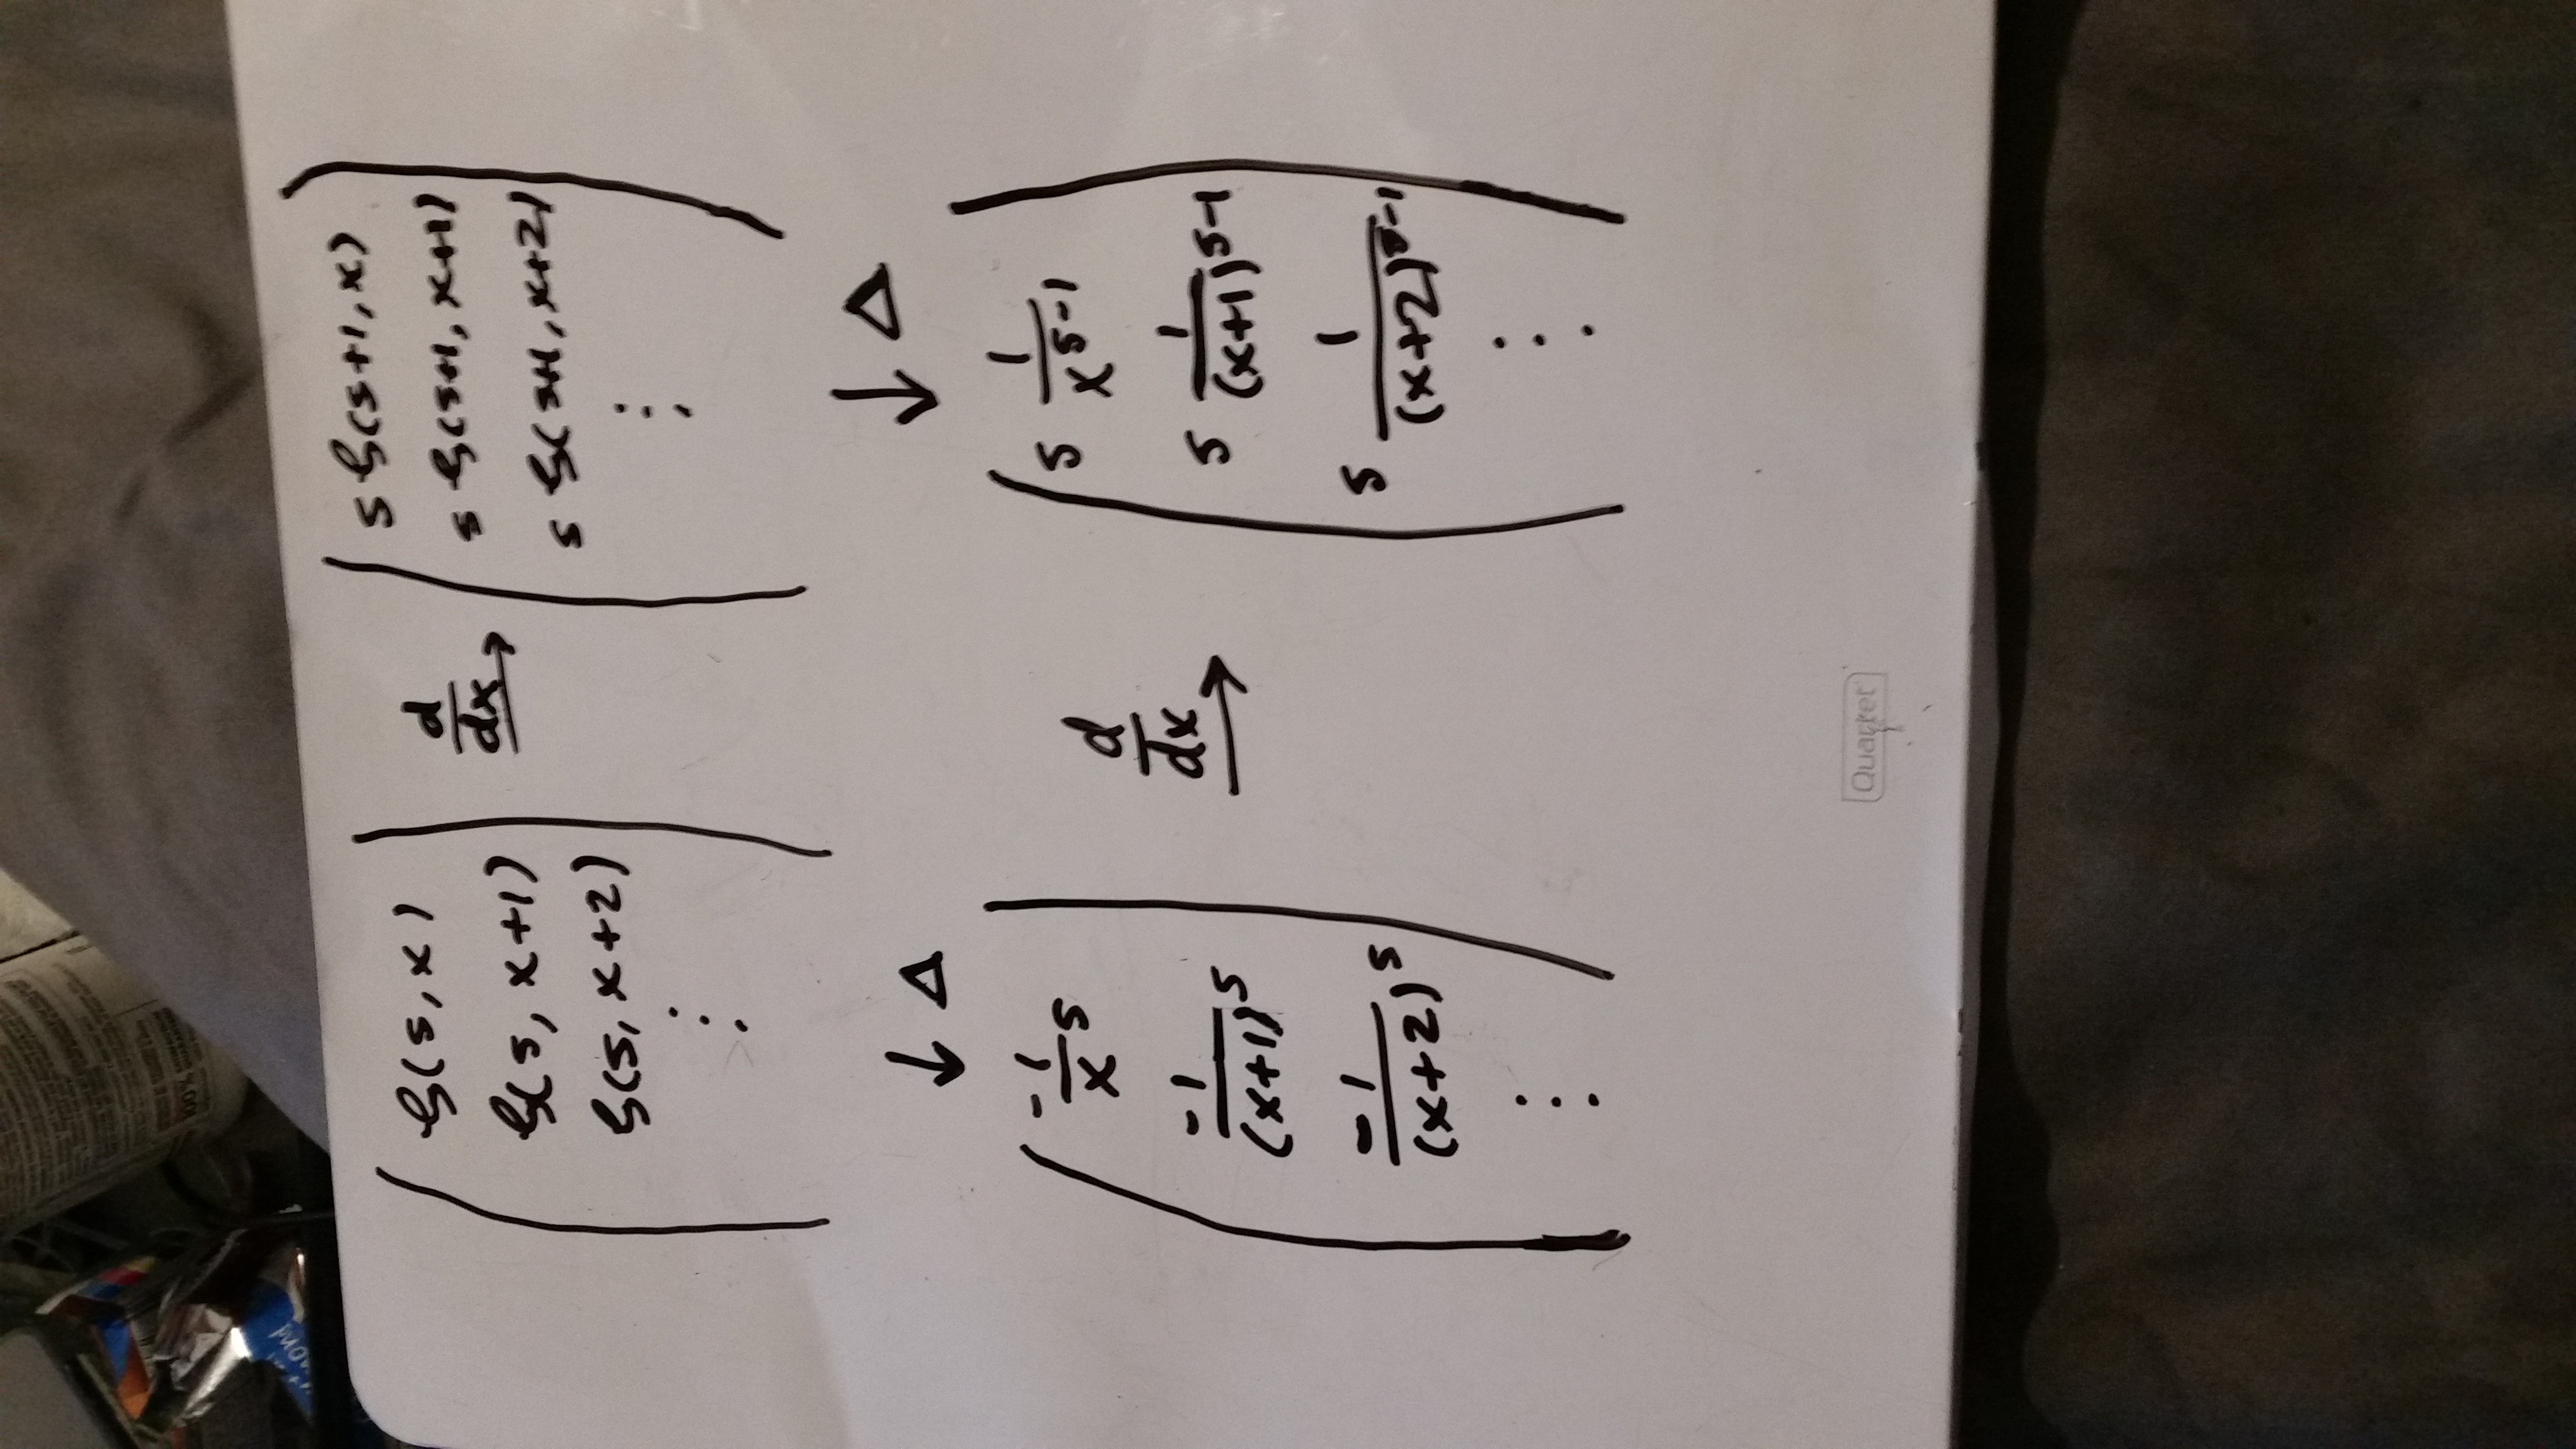 100%
ζ(s, x)
ζ(s, x+1)
ζ(s, x+2)
⋮
d/dx →
s ζ(s+1, x)
s ζ(s+1, x+1)
s ζ(s+1, x+2)
⋮
↓ Δ
↓ Δ
-1/x^s
-1/(x+1)^s
-1/(x+2)^s
⋮
d/dx →
s 1/x^(s-1)
s 1/(x+1)^(s-1)
s 1/(x+2)^(s-1)
⋮
Quartet